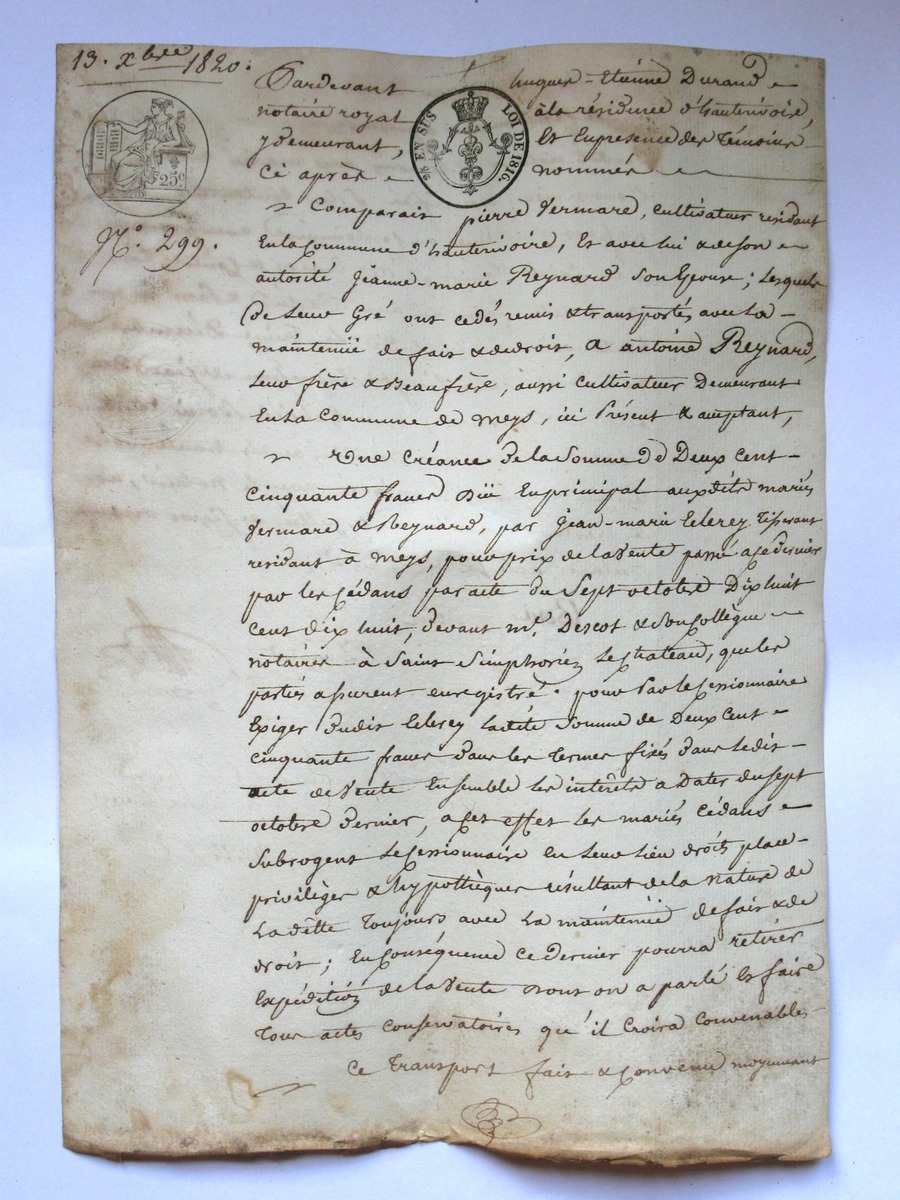 13. xbre 1820.
Pardevant hugues-Etienne Durand
notaire royal à la résidence d'hauterivoire,
y demeurant, Et En presence des Témoins
Ci après nommés
25c
2/5 EN SUS LOI DE 1816.
No. 299.
Comparait pierre Vermare, Cultivateur residant
En la Commune d'hauterivoire, Et avec lui & de son
autorité Jeanne-marie Reynard Son Epouse; Lesquels
De Leur Gré ont cedés remis & transportés avec La
maintenüe de fait & de droit, a antoine Reynard,
Leur frère & Beaufrère, aussi Cultivateur Demeurant
En La Commune de meys, ici Présent & acceptant,
Une Créance de la Somme De Deux Cent
Cinquante francs düe En principal auxdits mariés
Vermare & Reynard, par Jean-marie Leclerey Tisserant
residant à meys, pour prix de la Vente passé a ce dernier
par les Cédans par acte du Sept octobre Dix huit
Cent dix huit, devant me. Descot & Son Collègue
notaires à Saint Simphorien Le Chateau, que les
parties assurent enregistré. pour Par le Cessionnaire
Exiger dudit Leclerey Ladite Somme de Deux Cent
Cinquante francs dans les Termes fixés dans Ledit
acte de Vente Ensemble les interêts a Dater du sept
octobre dernier, a cet effet les mariés Cédans
Subrogent Le Cessionnaire En Leur Lieu droits place
privilèges & hypothèques résultant de la nature de
La dette Toujours avec La maintenüe de fait & de
droit; En Conséquence Ce Dernier pourra retirer
Expédition de la Vente dont on a parlé Et faire
Tous actes Conservatoires qu'il Croira Convenables
Ce Transport fait & Convenu moyennant